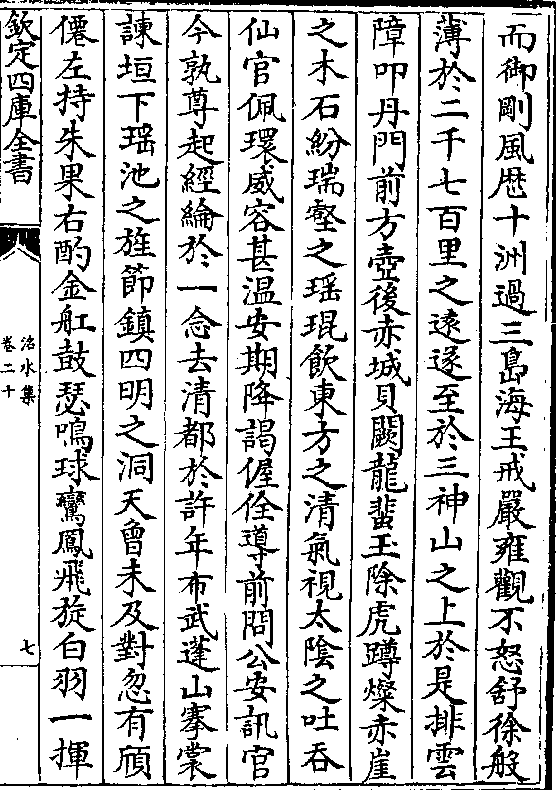 而御剛風歴十洲過三島海王戒嚴雍觀不怒舒徐般
薄於二千七百里之遠遂至於三神山之上於是排雲
障叩丹門前方壺後赤城貝闕龍蜚玉除虎蹲燦赤崖
之木石紛瑞壑之瑶琨飲東方之清氣視太陰之吐吞
仙官佩環威容甚温安期降謁偓佺導前問公安訊官
今孰尊起經綸於一念去清都於許年布武蓬山搴裳
諫垣下瑶池之旌節鎮四明之洞天曾未及對忽有頎
僊左持朱果右酌金缸鼓瑟鳴球鸞鳳飛旋白羽一揮
欽定四庫全書
洺水集
卷二十
七